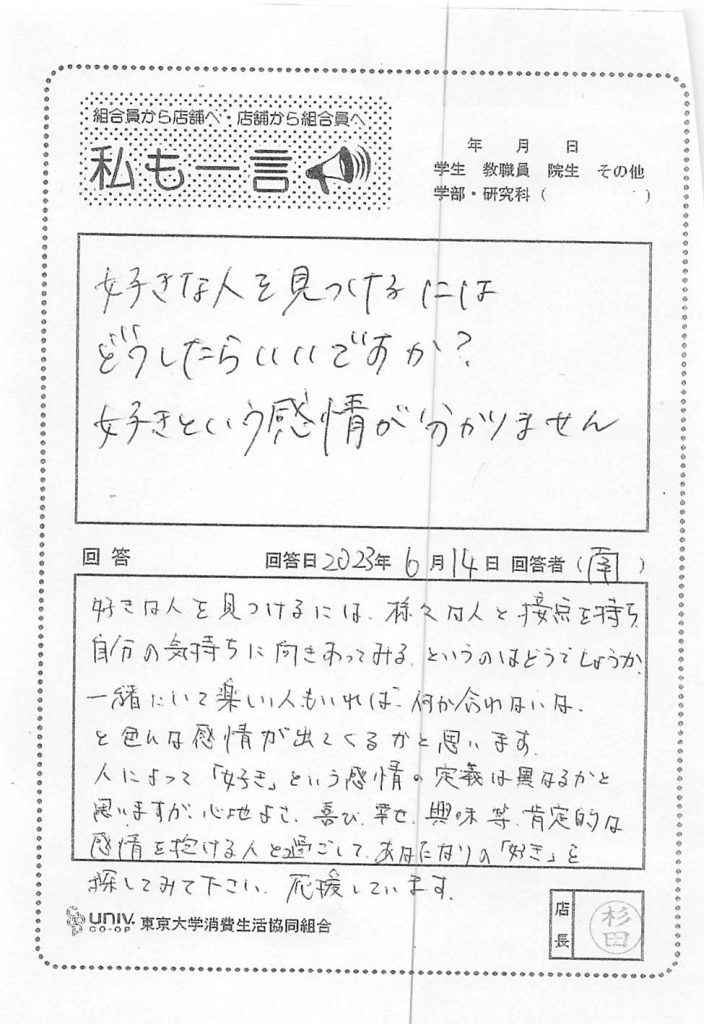 組合員から店舗へ・店舗から組合員へ
私も一言
年 月 日
学生 教職員 院生 その他
学部・研究科( )
好きな人を見つけるには
どうしたらいいですか?
好きという感情が分かりません
回答 回答日2023年6月14日 回答者(南)
好きな人を見つけるには、様々な人と接点を持ち
自分の気持ちに向きあってみる、というのはどうでしょうか。
一緒にいて楽しい人もいれば、何か合わないな、
と色んな感情が出てくるかと思います。
人によって「好き」という感情の定義は異なるかと
思いますが、心地よさ、喜び、幸せ、興味等、肯定的な
感情を抱ける人と過ごして、あなたなりの「好き」を
探してみて下さい。応援しています。
UNIV. CO-OP 東京大学消費生活協同組合
店長 杉田